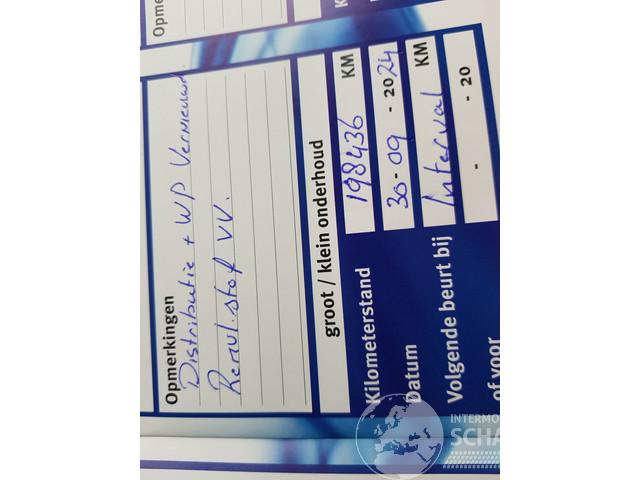 Opme
K
Opmerkingen
Distributie + WP Vernieuwd.
Remvl.stof VV.
groot / klein onderhoud
Kilometerstand 198436 KM
Datum 30-09 - 2024
Volgende beurt bij Interval KM
of voor - - 20
INTERMO
SCHA